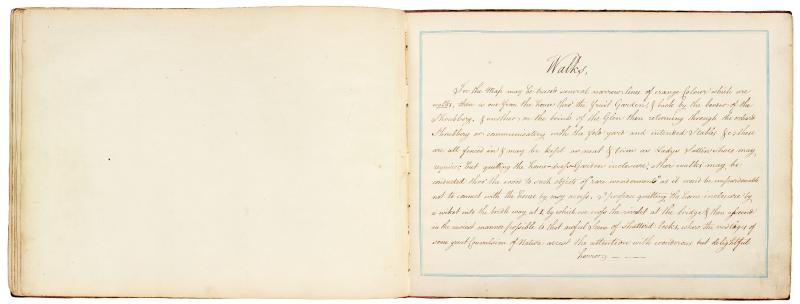 Walks.
In the Map may be traced several narrow lines of orange Colour which are
walks, there is one from the House thro' the Fruit Garden, & back by the border of the
Shrubbery, & another, on the brink of the Glen then returning through the
Shrubbery or communicating with the yard and intended Stables &c these
are all fenced in & may be kept as neat & trim as Ladys Sattin Shoes may
require; but quitting the home-dress-Garden inclosure; other walks may be
conducted thro' the to such objects of "rare wonderment" as it would be unpardonable
not to connect with the House by easy access, I propose quitting the Lawn inclosure by
a wicket into the brick way at 1, by which we cross the rivulet at the bridge & then ascend
in the easiest manner possible to that awful Scene of Shatter'd Rocks, where the vestiges of
some great Convulsion of Nature arrest the attention with wonderous but delightful
horror,